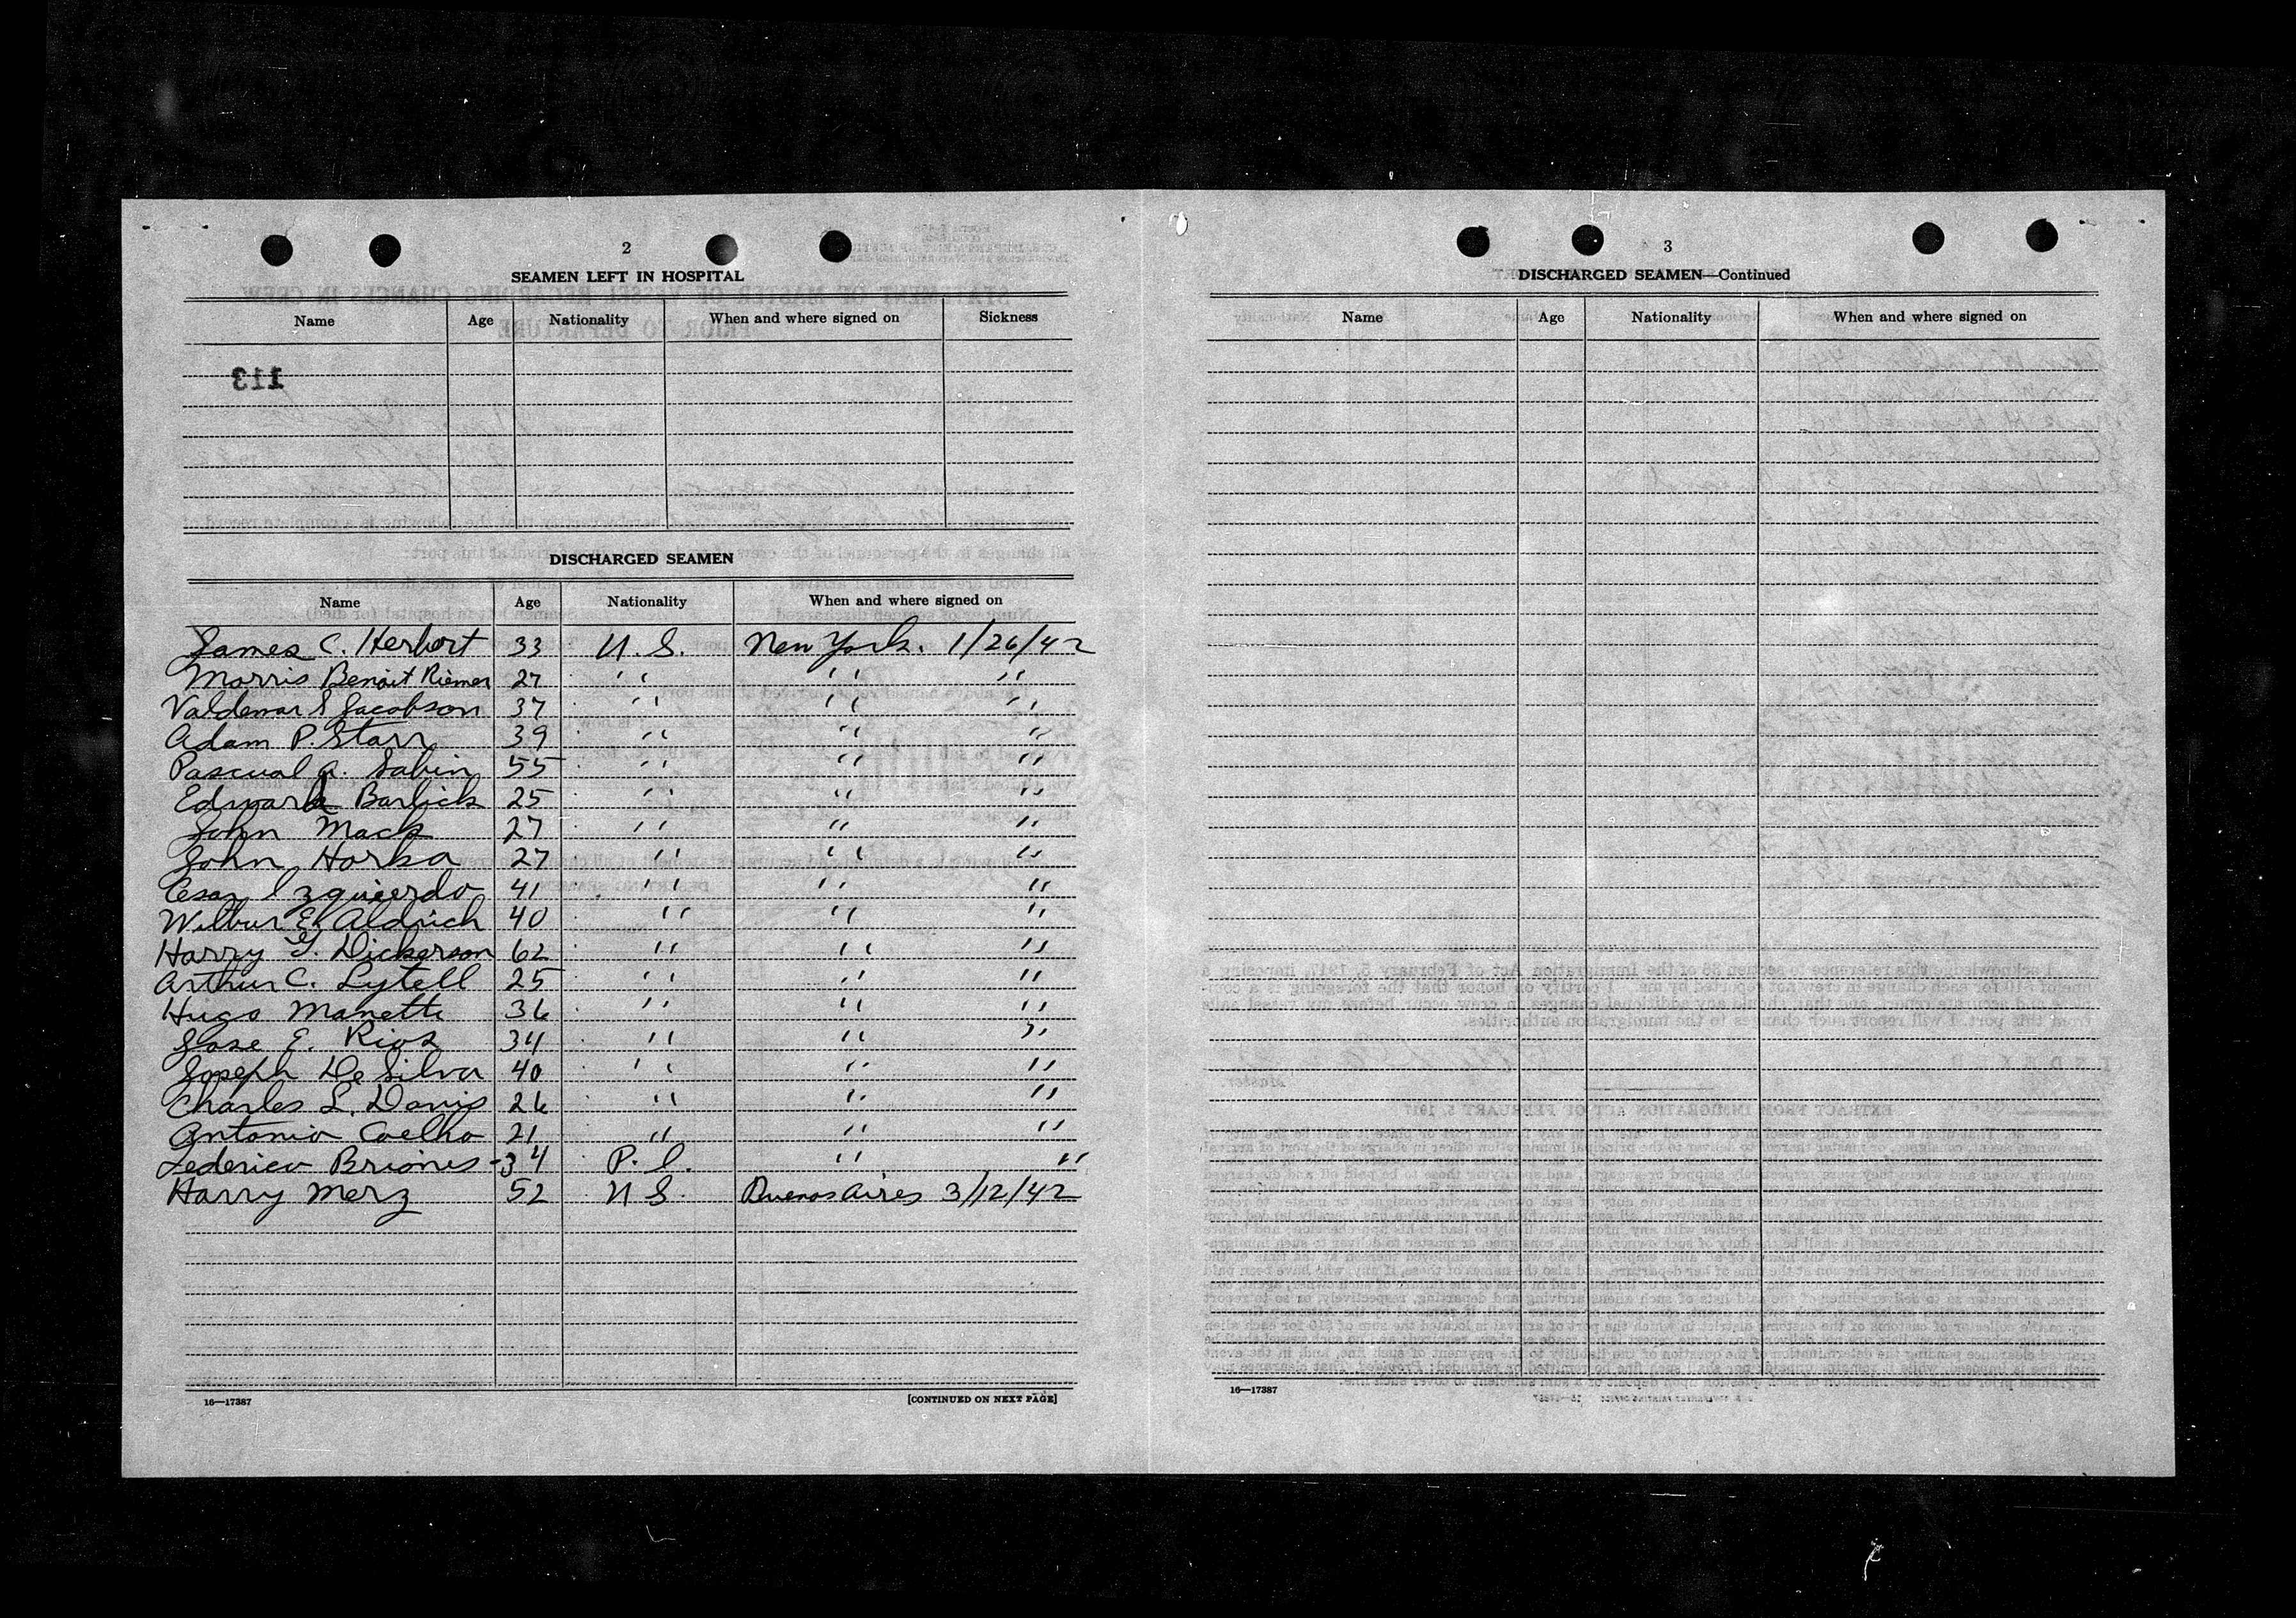 2
SEAMEN LEFT IN HOSPITAL
Name Age Nationality When and where signed on Sickness
113
DISCHARGED SEAMEN
Name Age Nationality When and where signed on
James C. Herbort 33 U.S. New York. 1/26/42
Morris Benoit Riemer 27 " " "
Valdemar S Jacobson 37 " " "
Adam P. Starr 39 " " "
Pascual A. Sabin 55 " " "
Edward Barlick 25 " " "
John Mack 27 " " "
John Horba 27 " " "
Cesar Izquierdo 41 " " "
Wilbur E. Aldrich 40 " " "
Harry G. Dickerson 62 " " "
Arthur C. Lytell 25 " " "
Hugo Manette 36 " " "
Jose E. Rios 34 " " "
Joseph De Silva 40 " " "
Charles L. Davis 26 " " "
Antonio Coelho 21 " " "
Federico Briones - 34 P.I. " "
Harry Merz 52 U S. Buenos Aires 3/12/42
16—17387
[CONTINUED ON NEXT PAGE]
3
DISCHARGED SEAMEN—Continued
Name Age Nationality When and where signed on
16—17387